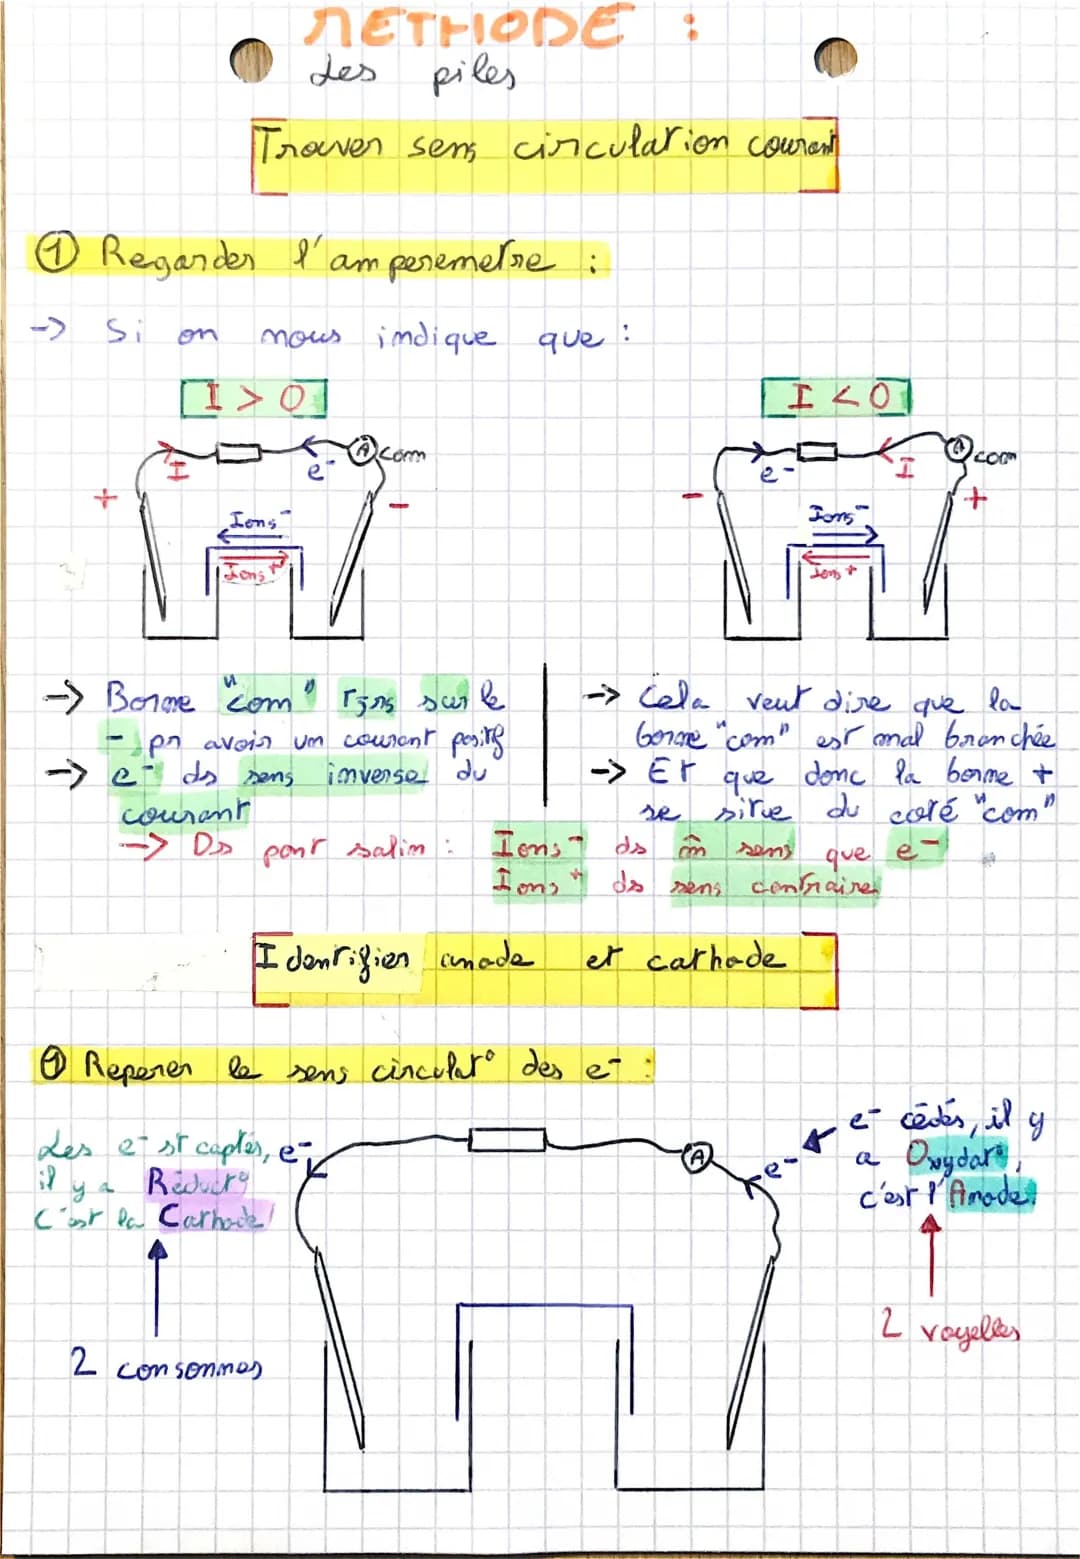 METHODE :
Les piles
Trouver sens circulation courant
① Regarder l'amperemetre :
-> Si on nous indique que :
I > 0
I < 0
I
e-
A com
+
-
Ions -
Ions +
e-
I
A com
-
+
Ions -
Ions +
-> Borne "com" tjrs sur le
- pr avoir un courant positif
-> e- ds sens inverse du
courant
-> Cela veut dire que la
borne "com" est mal branchée
-> Et que donc la borne +
se situe du coté "com"
-> Ds pont salin : Ions - ds m̂ sens que e-
Ions + ds sens contraire
Identifier anode et cathode
① Reperer le sens circulat° des e- :
Les e- st captés,
il y a Réduct°
C'est la Cathode
2 consonnes
e-
A
e-
e- cédés, il y
a Oxydat°,
c'est l'Anode.
2 voyelles